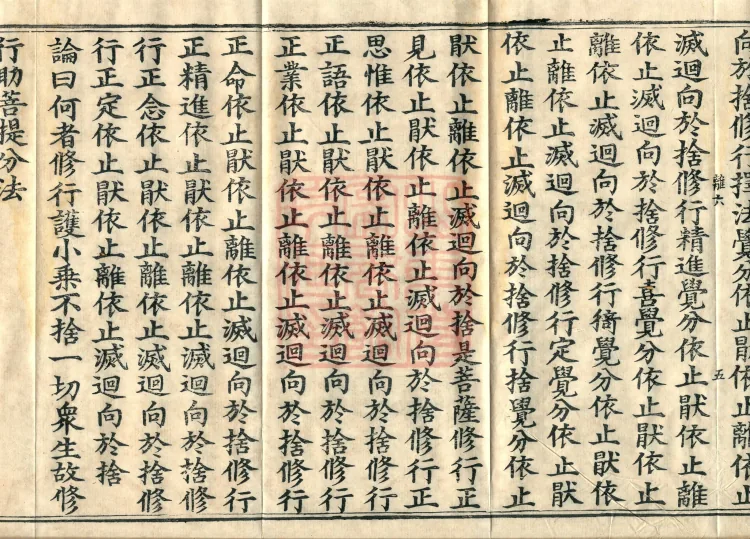 向於捨修行擇法覺分依止猒依止離依止
離六
五
滅迴向於捨修行精進覺分依止猒依止離
依止滅迴向於捨修行喜覺分依止猒依止
離依止滅迴向於捨修行猗覺分依止猒依
止離依止滅迴向於捨修行定覺分依止猒
依止離依止滅迴向於捨修行捨覺分依止
猒依止離依止滅迴向於捨是菩薩修行正
見依止猒依止離依止滅迴向於捨修行正
思惟依止猒依止離依止滅迴向於捨修行
正語依止猒依止離依止滅迴向於捨修行
正業依止猒依止離依止滅迴向於捨修行
正命依止猒依止離依止滅迴向於捨修行
正精進依止猒依止離依止滅迴向於捨修
行正念依止猒依止離依止滅迴向於捨修
行正定依止猒依止離依止滅迴向於捨
論曰何者修行護小乘不捨一切衆生故修
行助菩提分法